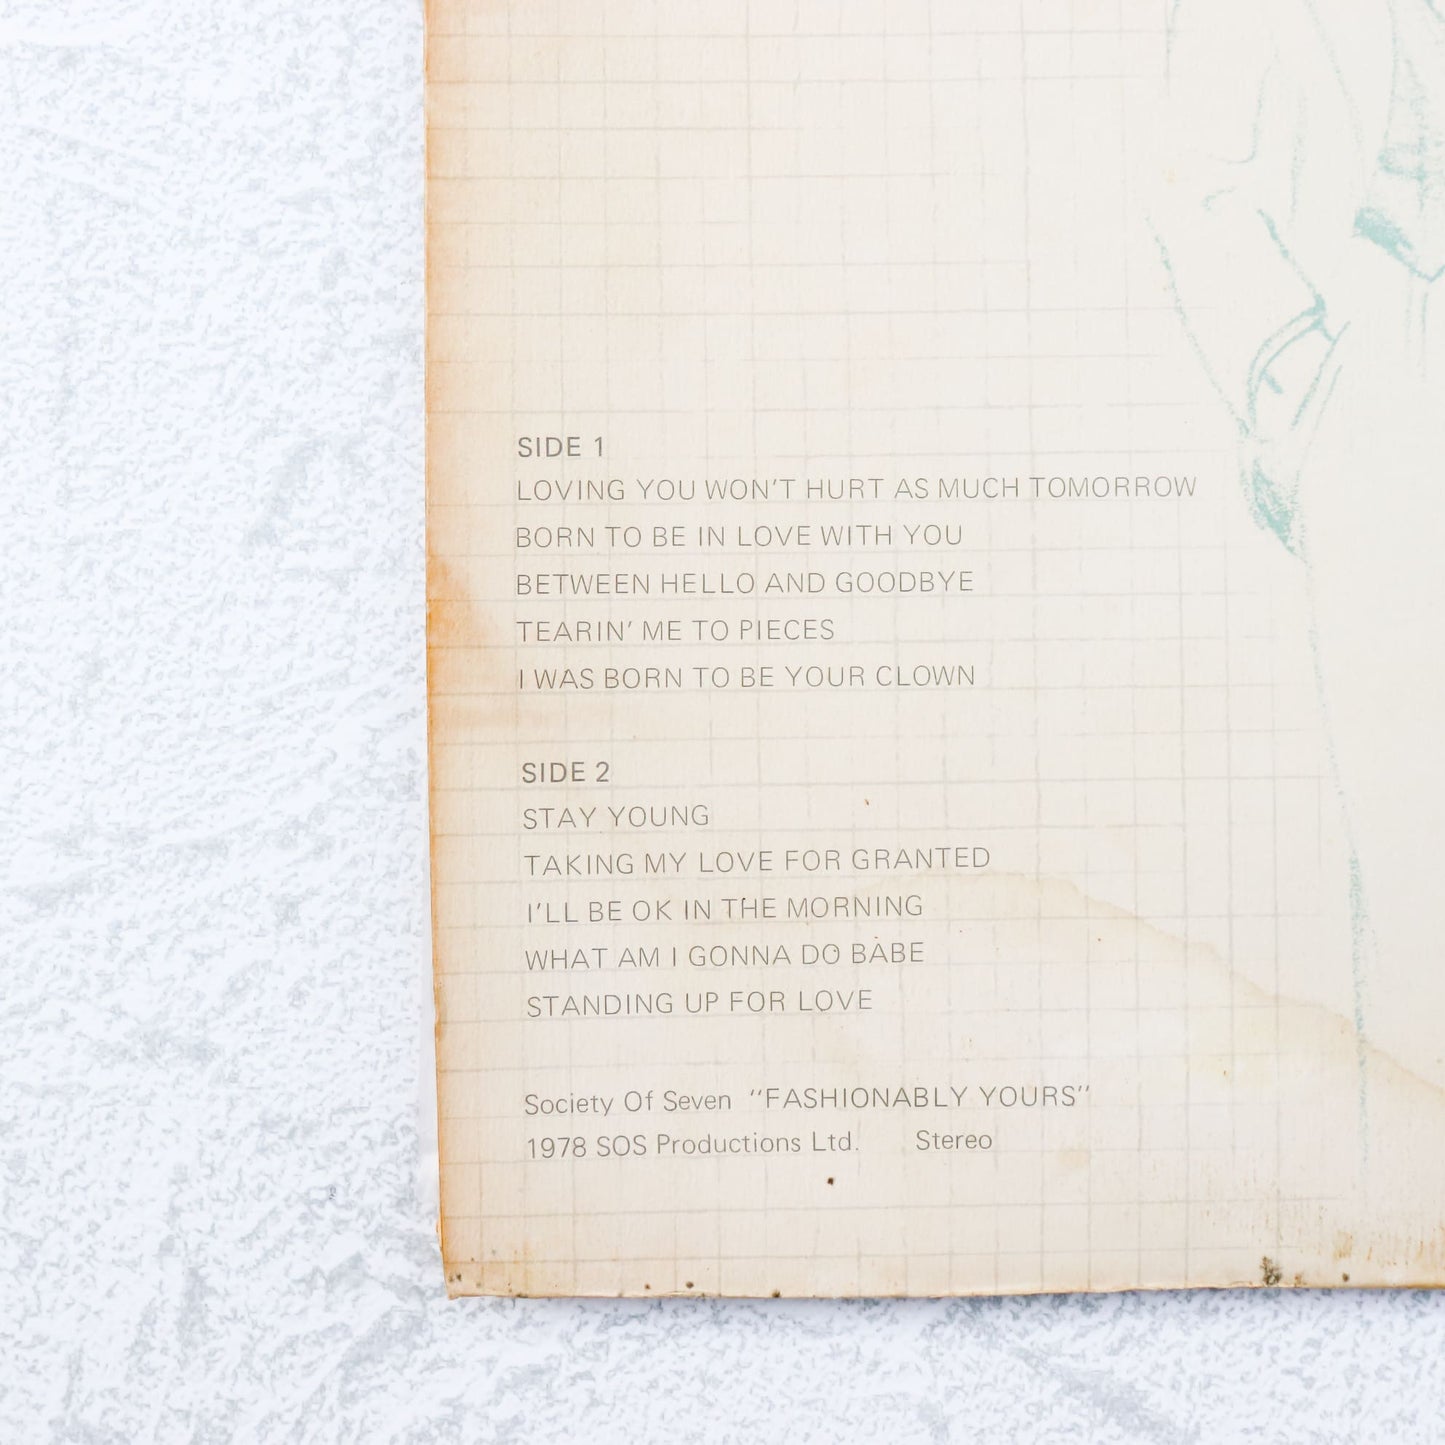 SIDE 1
LOVING YOU WON'T HURT AS MUCH TOMORROW
BORN TO BE IN LOVE WITH YOU
BETWEEN HELLO AND GOODBYE
TEARIN' ME TO PIECES
I WAS BORN TO BE YOUR CLOWN
SIDE 2
STAY YOUNG
TAKING MY LOVE FOR GRANTED
I'LL BE OK IN THE MORNING
WHAT AM I GONNA DO BABE
STANDING UP FOR LOVE
Society Of Seven "FASHIONABLY YOURS"
1978 SOS Productions Ltd. Stereo